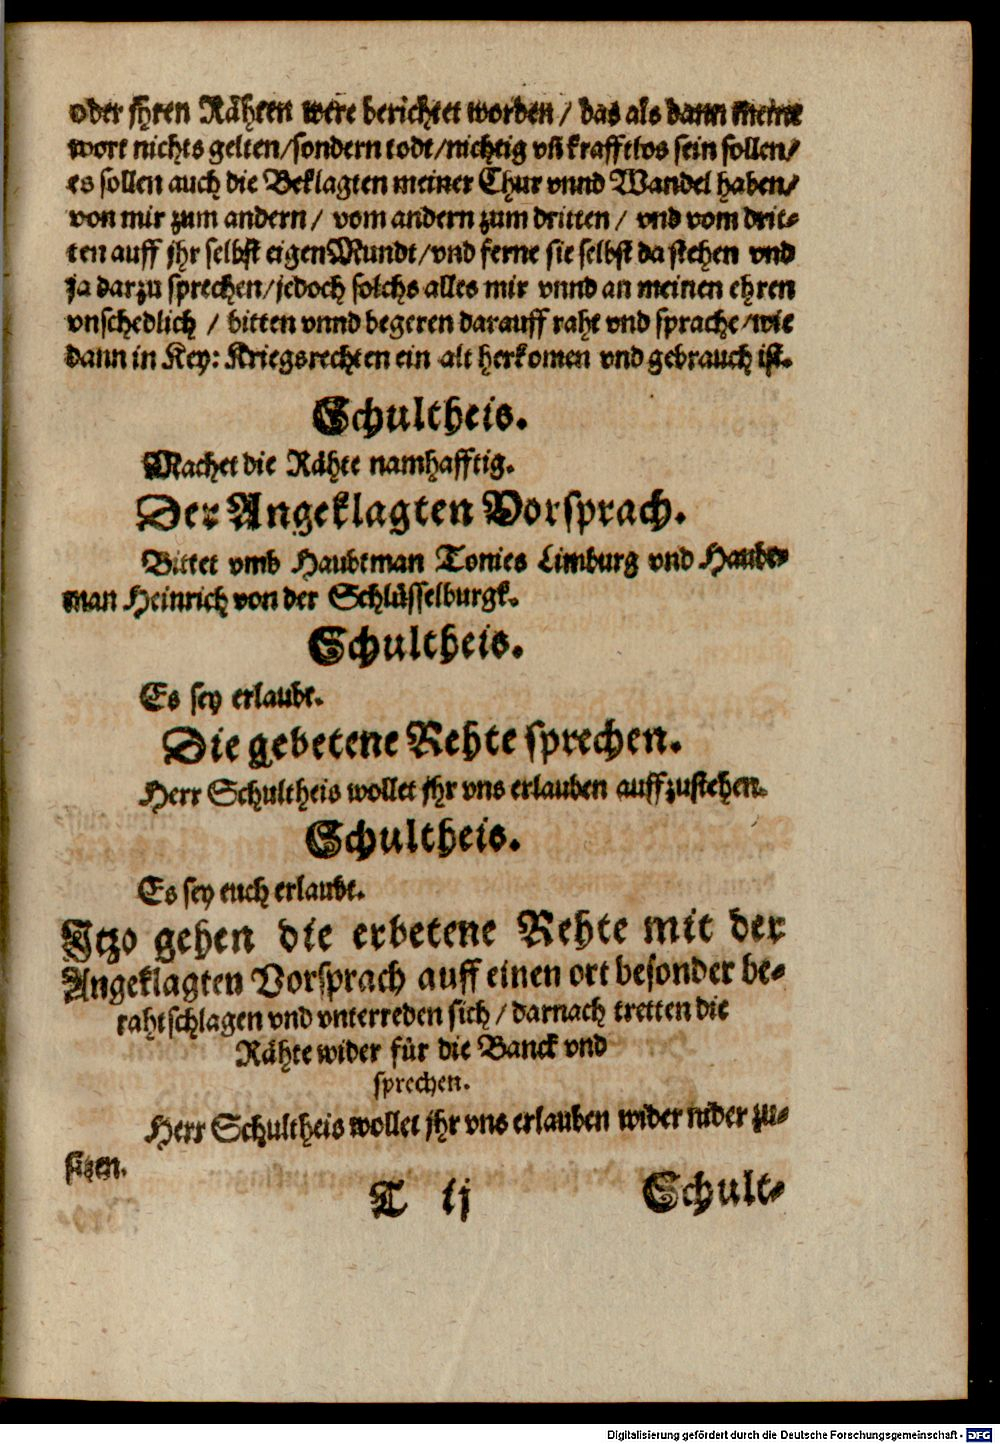 oder jhren Rähten were berichtet worden / das als dann meine
wort nichts gelten/sondern todt/nichtig vñ krafftlos sein sollen/
es sollen auch die Beklagten meiner Chur vnnd Wandel haben/
von mir zum andern / vom andern zum dritten / vnd vom drit-
ten auff jhr selbst eigen Mundt/vnd ferne sie selbst da stehen vnd
ja darzu sprechen/jedoch solchs alles mir vnnd an meinen ehren
vnschedlich / bitten vnnd begeren darauff raht vnd sprache/wie
dann in Key: Kriegsrechten ein alt herkomen vnd gebrauch ist.
Schultheis.
Machet die Rähte namhafftig.
Der Angeklagten Vorsprach.
Bittet vmb Haubtman Tonies Limburg vnd Haubt-
man Heinrich von der Schlüsselburgk.
Schultheis.
Es sey erlaubt.
Die gebetene Rehte sprechen.
Herr Schultheis wollet jhr vns erlauben auffzustehen.
Schultheis.
Es sey euch erlaubt.
Itzo gehen die erbetene Rehte mit der
Angeklagten Vorsprach auff einen ort besonder be-
rahtschlagen vnd vnterreden sich / darnach tretten die
Rähte wider für die Banck vnd
sprechen.
Herr Schultheis wollet jhr vns erlauben wider nider zu-
sitzen.
T ij Schult-
Digitalisierung gefördert durch die Deutsche Forschungsgemeinschaft - DFG